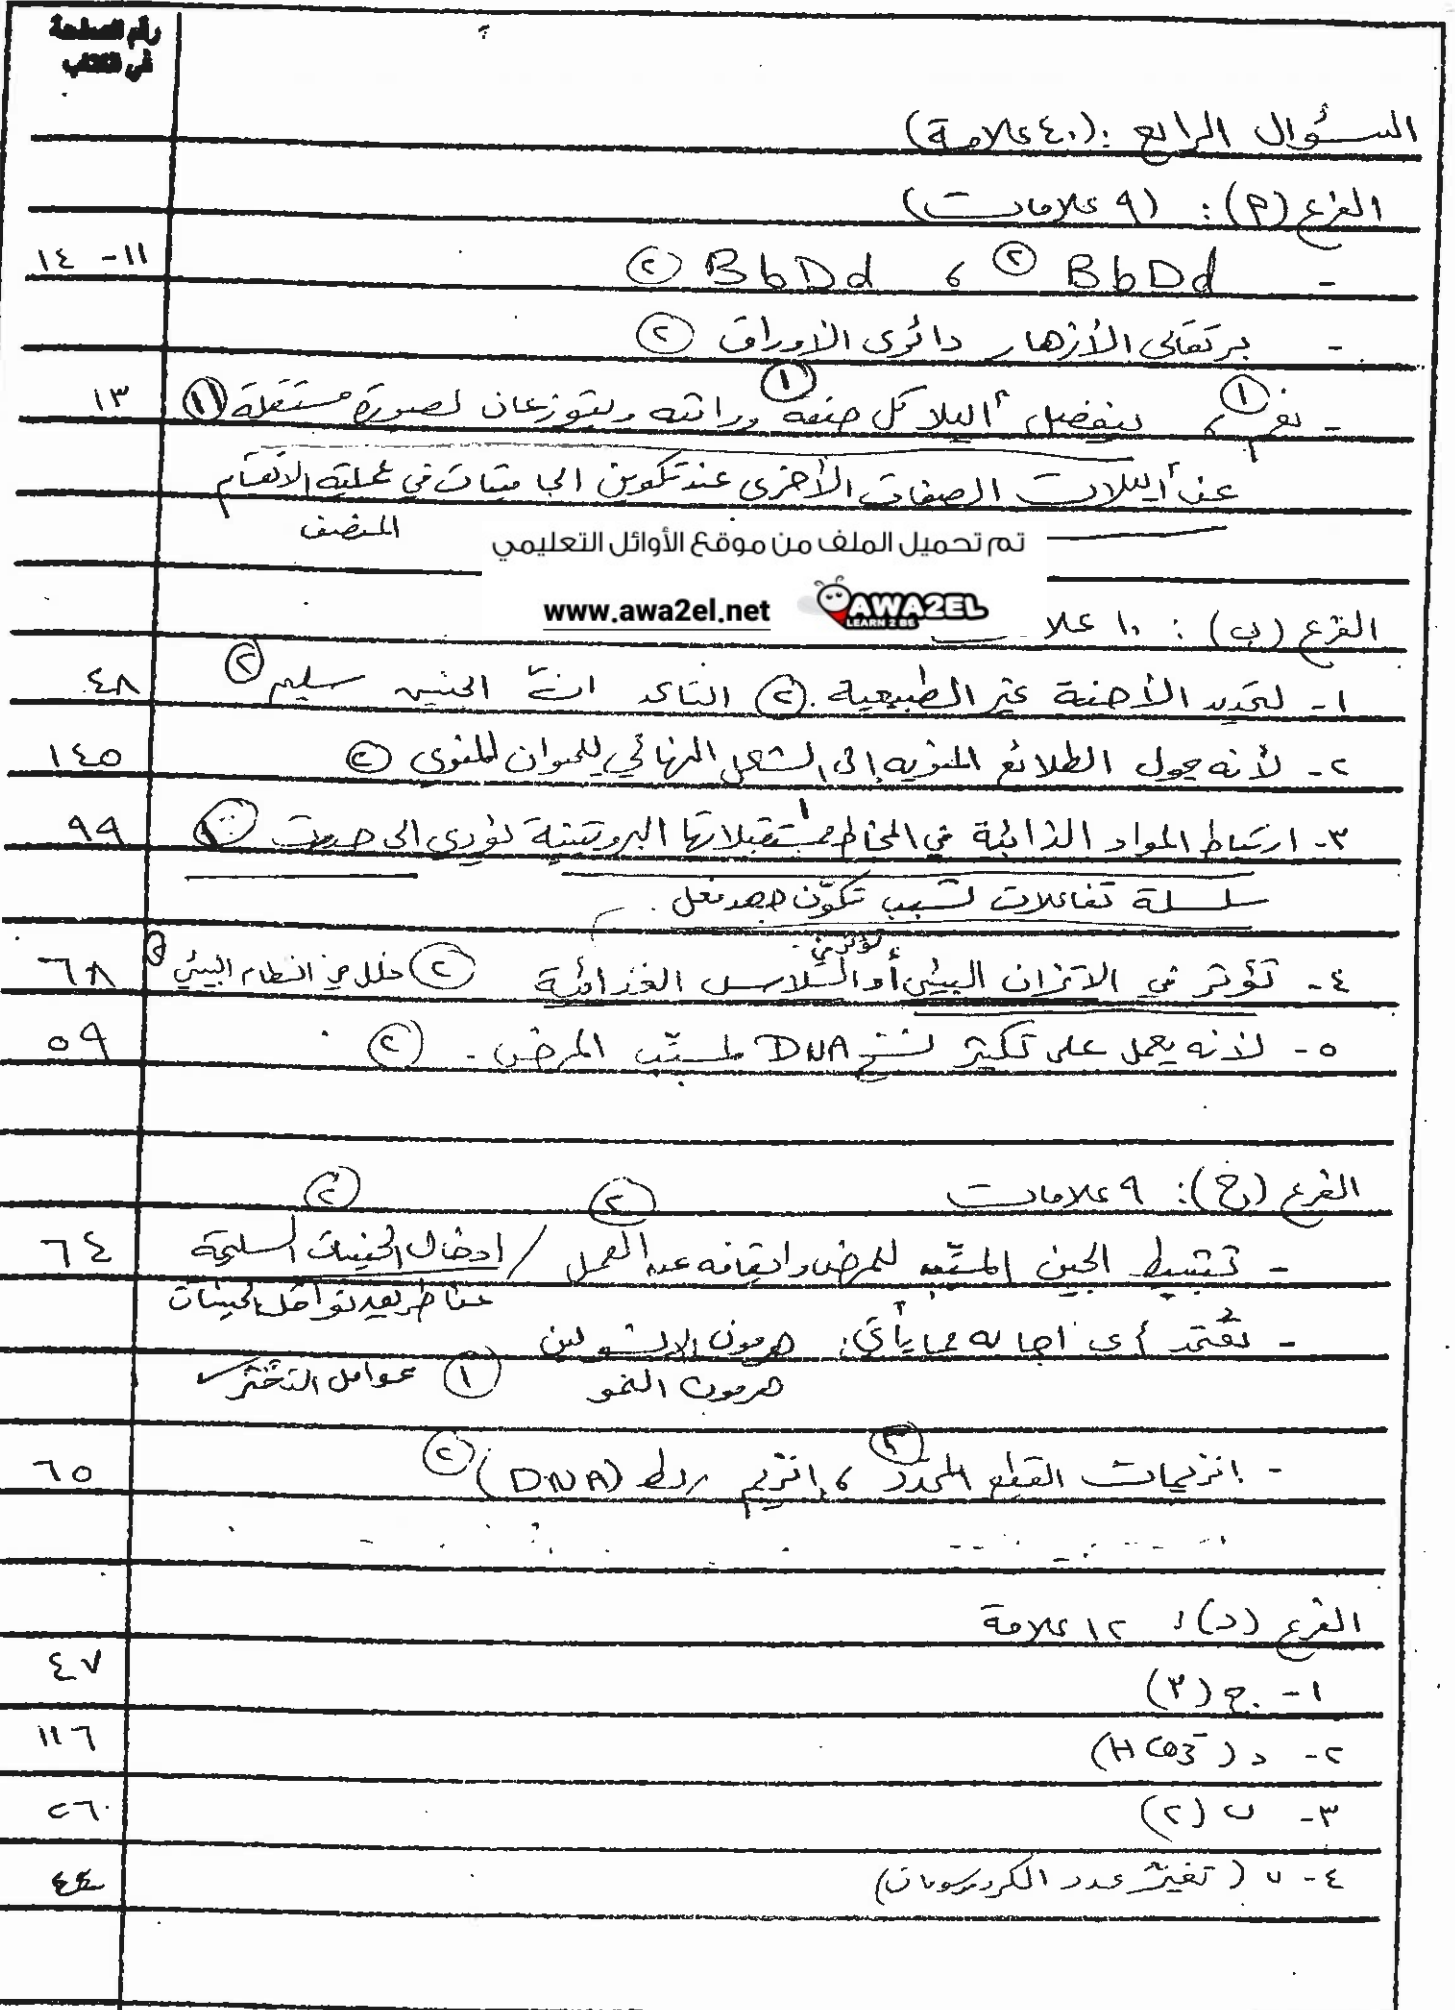 رقم الصفحة
في الكتاب
السؤال الرابع : (٤٠ علامة)
الفرع (أ) : (٩ علامات)
- BbDd ② ، BbDd ② ١١- ١٤
- برتقالي الأزهار دائري الاوراق ②
- نعم ① ، ينفصل أليلا كل صفة وراثته ويتوزعان لصورة مستقلة ① ١٣
عن أليلات الصفات الأخرى عند تكوين الجاميتات في عملية الانقسام
المنصف
تم تحميل الملف من موقع الأوائل التعليمي
www.awa2el.net AWA2EL
LEARN 2 BE
الفرع (ب) : ١٠ علا
١- لتحديد الأجنة غير الطبيعية . ② التأكد انّ الجنين سليم ② ٤٨
٢- لأنه يحول الطلائع المنوية إلى الشكل النهائي للحيوان المنوي ② ١٤٥
٣- ارتباط المواد الذائبة في المخاط بمستقبلاتها البروتينية تؤدي الى حدوث ٩٩
سلسلة تفاعلات تسبب تكوّن جهد فعل .
٤- تؤثر في الاتزان البيئي أو السلاسل الغذائية ② خلل في النظام البيئي ٦٨
٥- لأنه يعمل على تكثير نسخ DNA لمسبّب المرض . ② ٥٩
الفرع (ج) : ٩ علامات
- تثبيط الجين المسبّب للمرض وايقافه عن العمل ② / ادخال الجينات السليمة ② ٦٤
عن طريق نواقل الجينات
- تعتمد أي اجابة مما يأتي : هرمون الانسولين
هرمون النمو ① عوامل التخثر
- انزيمات القطع المحدد ② ، إنزيم ربط (DNA) ② ٦٥
الفرع (د) : ١٢ علامة
١- ج (٣) ٤٧
٢- د (HCO3-) ١١٦
٣- ب (٢) ٢٦
٤- ب (تغير عدد الكروموسومات) ٤٤